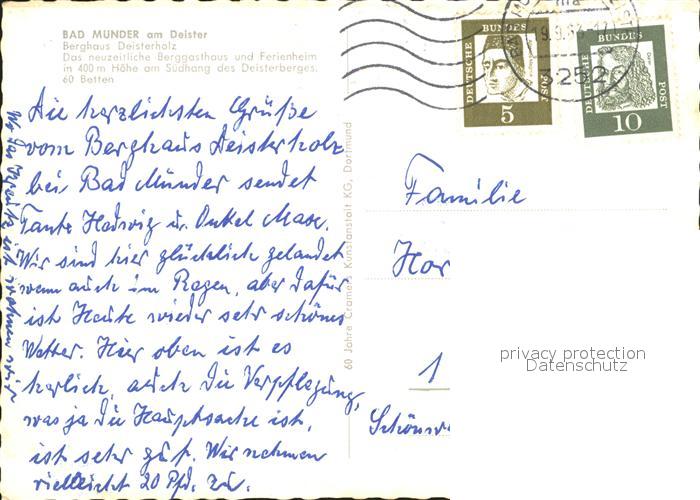 BAD MÜNDER am Deister
Berghaus Deisterholz
Das neuzeitliche Berggasthaus und Ferienheim
in 400 m Höhe am Südhang des Deisterberges.
60 Betten
Die herzlichsten Grüße
vom Berghaus Deisterholz
bei Bad Münder sendet
Tante Hedwig u. Onkel Max.
Wir sind hier glücklich gelandet
wenn auch im Regen, aber dafür
ist Heute wieder sehr schönes
Wetter. Hier oben ist es
herlich, auch die Verpflegung,
was ja die Hauptsache ist,
ist sehr gut. Wir nehmen
vielleicht 20 Pfd. zu.
Wo das Kreuz ist wohnen wir
60 Jahre Cramers Kunstanstalt KG, Dortmund
DEUTSCHE BUNDES POST
5
DEUTSCHE BUNDES POST
10
3252
Familie
Har
1
Schönw
privacy protection
Datenschutz